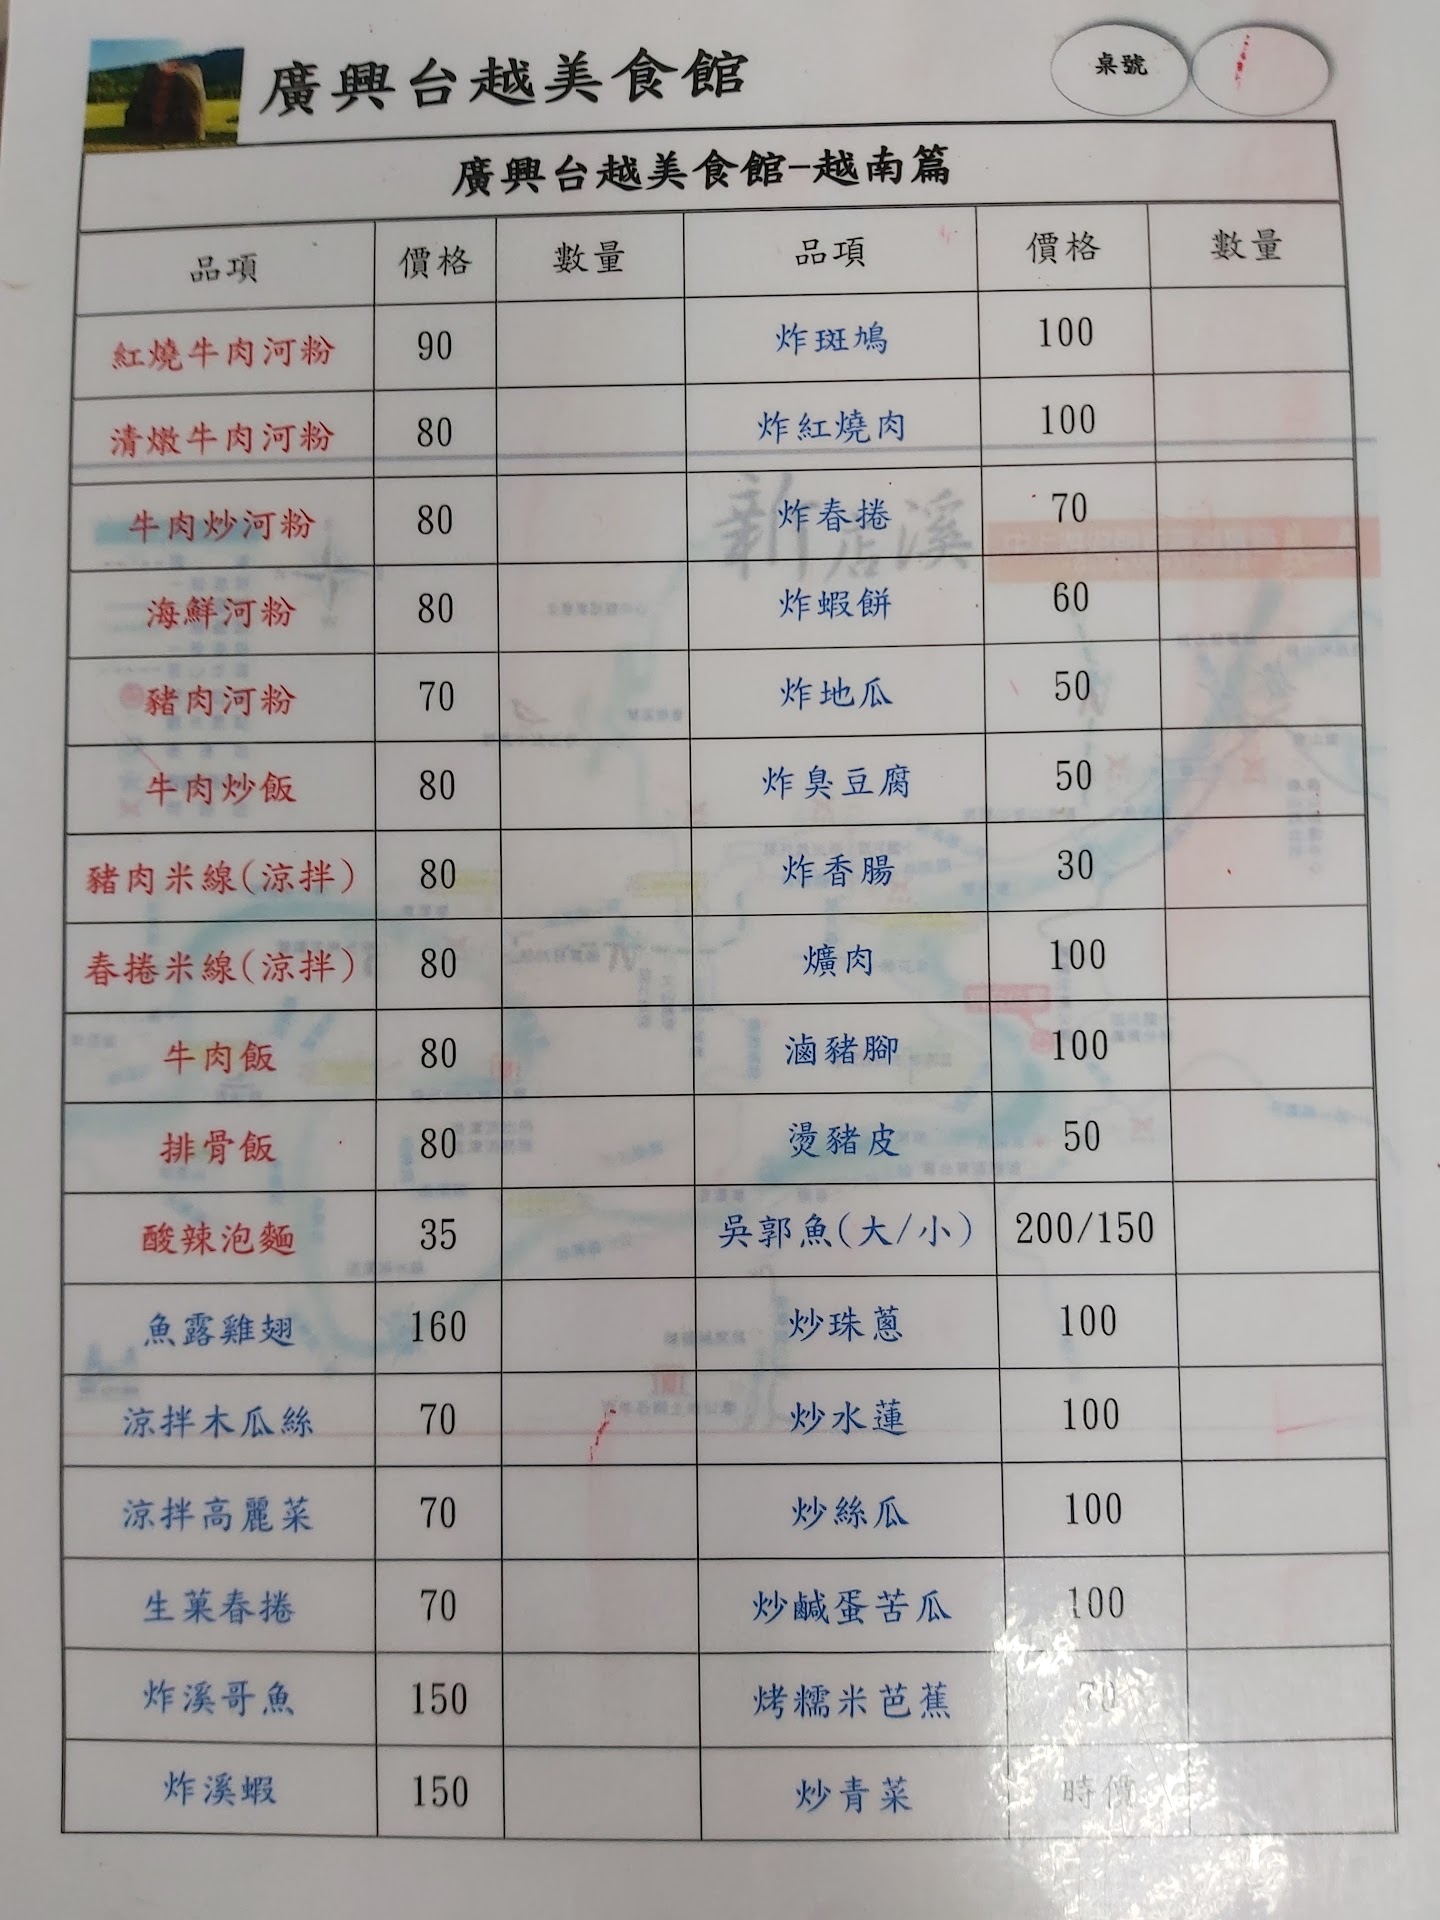 廣興台越美食館
桌號
廣興台越美食館-越南篇
品項 價格 數量 品項 價格 數量
紅燒牛肉河粉 90 炸斑鳩 100
清燉牛肉河粉 80 炸紅燒肉 100
牛肉炒河粉 80 炸春捲 70
海鮮河粉 80 炸蝦餅 60
豬肉河粉 70 炸地瓜 50
牛肉炒飯 80 炸臭豆腐 50
豬肉米線(涼拌) 80 炸香腸 30
春捲米線(涼拌) 80 爌肉 100
牛肉飯 80 滷豬腳 100
排骨飯 80 燙豬皮 50
酸辣泡麵 35 吳郭魚(大/小) 200/150
魚露雞翅 160 炒珠蔥 100
涼拌木瓜絲 70 炒水蓮 100
涼拌高麗菜 70 炒絲瓜 100
生菓春捲 70 炒鹹蛋苦瓜 100
炸溪哥魚 150 烤糯米芭蕉 70
炸溪蝦 150 炒青菜 時價
新店溪